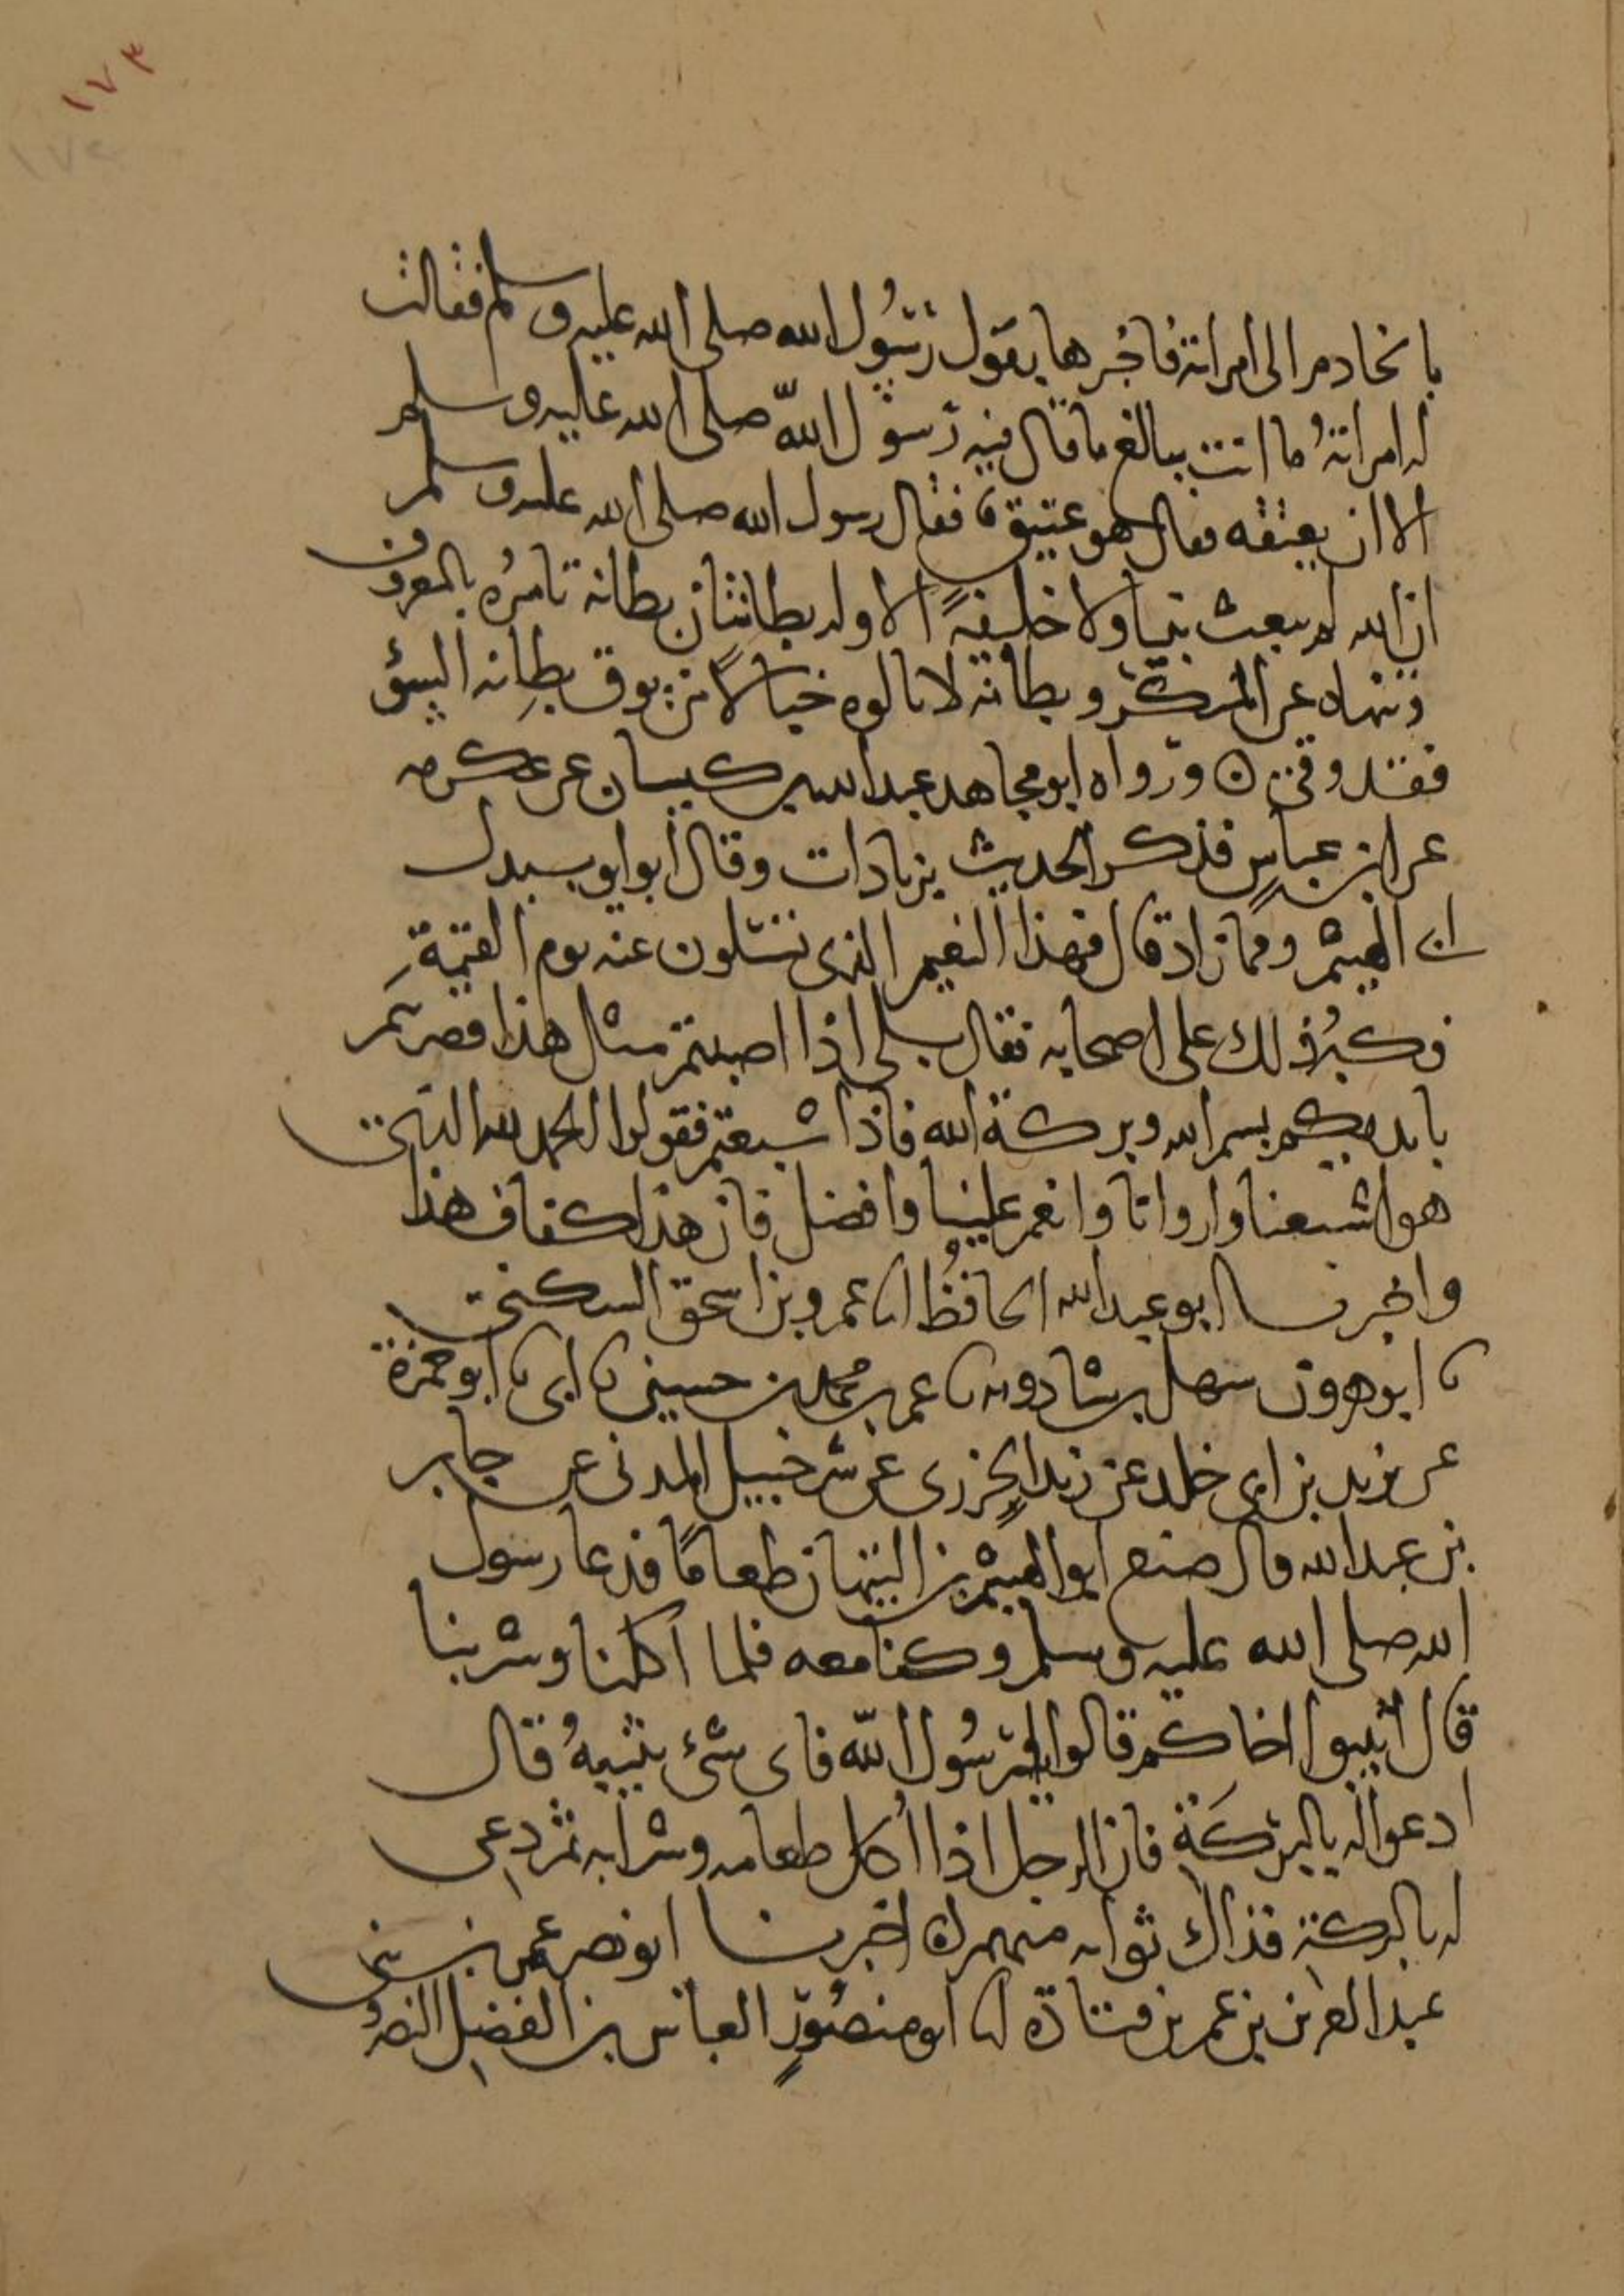 ١٧٣
١٧٤
بالخادم الى امراته فاخبرها بقول رسول الله صلى الله عليه وسلم فقالت
له امراته ما انت ببالغ ما قال فيه رسول الله صلى الله عليه وسلم
الا ان يعتقه فقال هو عتيق فقال رسول الله صلى الله عليه وسلم
ان الله لم يبعث نبيا ولا خليفة الا وله بطانتان بطانة تامره بالمعروف
وتنهاه عن المنكر وبطانة لا تالوه خبالا من يوق بطانة السوء
فقد وقى ورواه ابو مجاهد عبد الله بن كيسان عن عكرمه
عن ابن عباس فذكر الحديث بزيادات وقال ابو ايوب بدل
ابى الهيثم ومما زاد قال فهذا النعيم الذى تسئلون عنه يوم القيمة
فكبر ذلك على اصحابه فقال بلى اذا اصبتم مثل هذا فضربتم
بايديكم بسم الله وبركة الله فاذا شبعتم فقولوا الحمد لله الذى
هو اشبعنا واروانا وانعم علينا وافضل فان هذا كفاف هذا
واخبرنا ابو عبد الله الحافظ انا عمرو بن اسحق السكنى
نا ابو هرون سهل بن شادويه نا عمر بن محمد بن حسين نا ابى نا ابو حمزة
عن يزيد بن ابى خلد عن زيد الجزرى عن شرحبيل المدنى عن جابر
بن عبد الله قال صنع ابو الهيثم بن التيهان طعاما فدعا رسول
الله صلى الله عليه وسلم وكنا معه فلما اكلنا وشربنا
قال اثيبوا اخاكم قالوا يا رسول الله فاى شئ نثيبه قال
ادعوا له بالبركة فان الرجل اذا اكل طعامه وشرابه ثم دعى
له بالبركة فذاك ثوابه منهم اخبرنا ابو نصر عمر بن
عبد العزيز بن عمر بن قتادة انا ابو منصور العباس بن الفضل النضرو